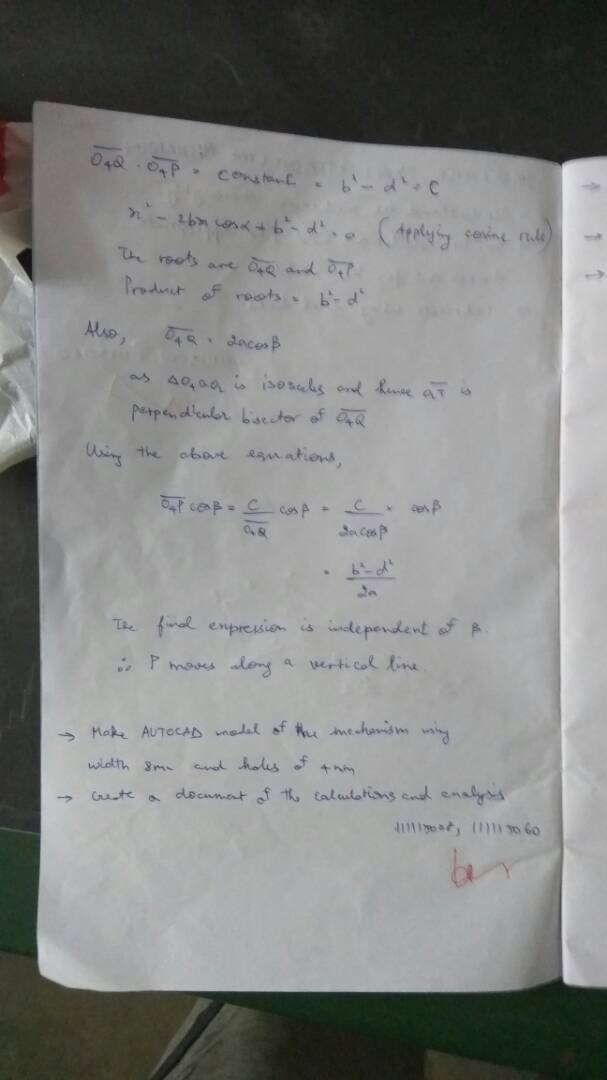 O₄Q · O₄P = constant = b² - d² = C
x² - 2bx cosα + b² - d² = 0 (Applying cosine rule)
The roots are O₄Q and O₄P
Product of roots = b² - d²
Also, O₄Q = 2acosβ
as is isosceles and hence is
perpendicular bisector of O₄Q
Using the above equations,
O₄P cosβ = C/O₄Q cosβ = C/2acosβ × cosβ
= b² - d²/2a
The final expression is independent of β.
∴ P moves along a vertical line.
→ Make AUTOCAD model of the mechanism using
width 8mm and holes of 4mm
→ Create a document of the calculations and analysis